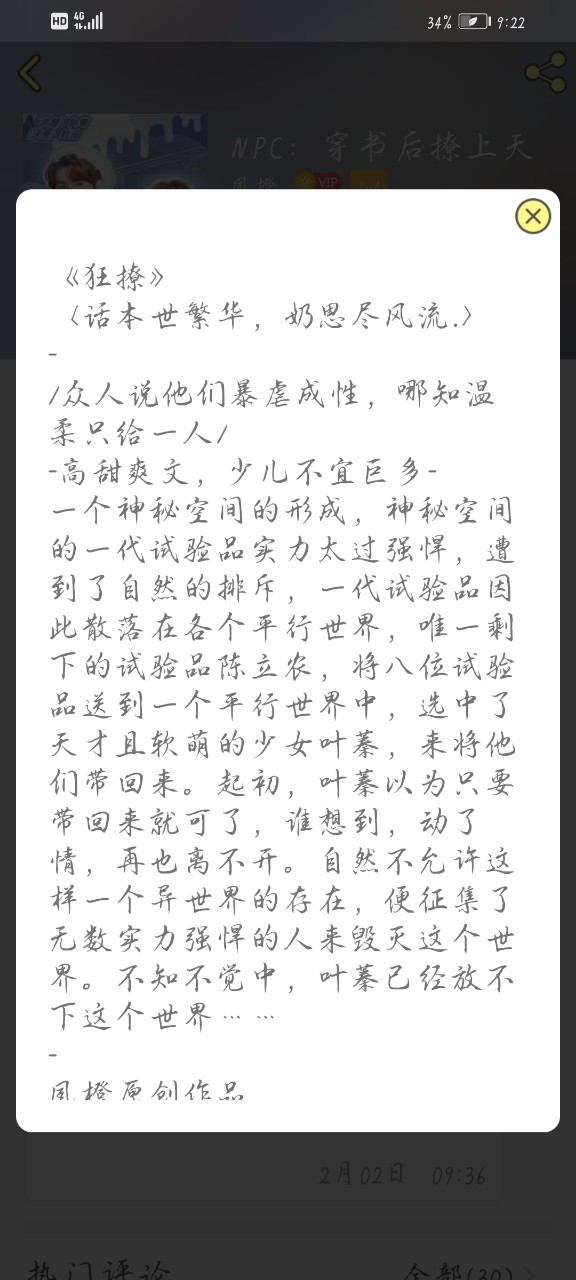 HD 4G 34% 9:22
NPC：穿书后撩上天
凤橙 VIP
《狂撩》
〈话本世繁华，奶思尽风流.〉
-
/众人说他们暴虐成性，哪知温
柔只给一人/
-高甜爽文，少儿不宜巨多-
一个神秘空间的形成，神秘空间
的一代试验品实力太过强悍，遭
到了自然的排斥，一代试验品因
此散落在各个平行世界，唯一剩
下的试验品陈立农，将八位试验
品送到一个平行世界中，选中了
天才且软萌的少女叶蓁，来将他
们带回来。起初，叶蓁以为只要
带回来就可了，谁想到，动了
情，再也离不开。自然不允许这
样一个异世界的存在，便征集了
无数实力强悍的人来毁灭这个世
界。不知不觉中，叶蓁已经放不
下这个世界……
-
凤橙原创作品
2月02日 09:36
热门评论 全部(30)